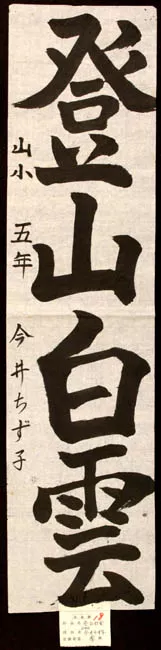 登山白雲
山小 五年 今井ちず子